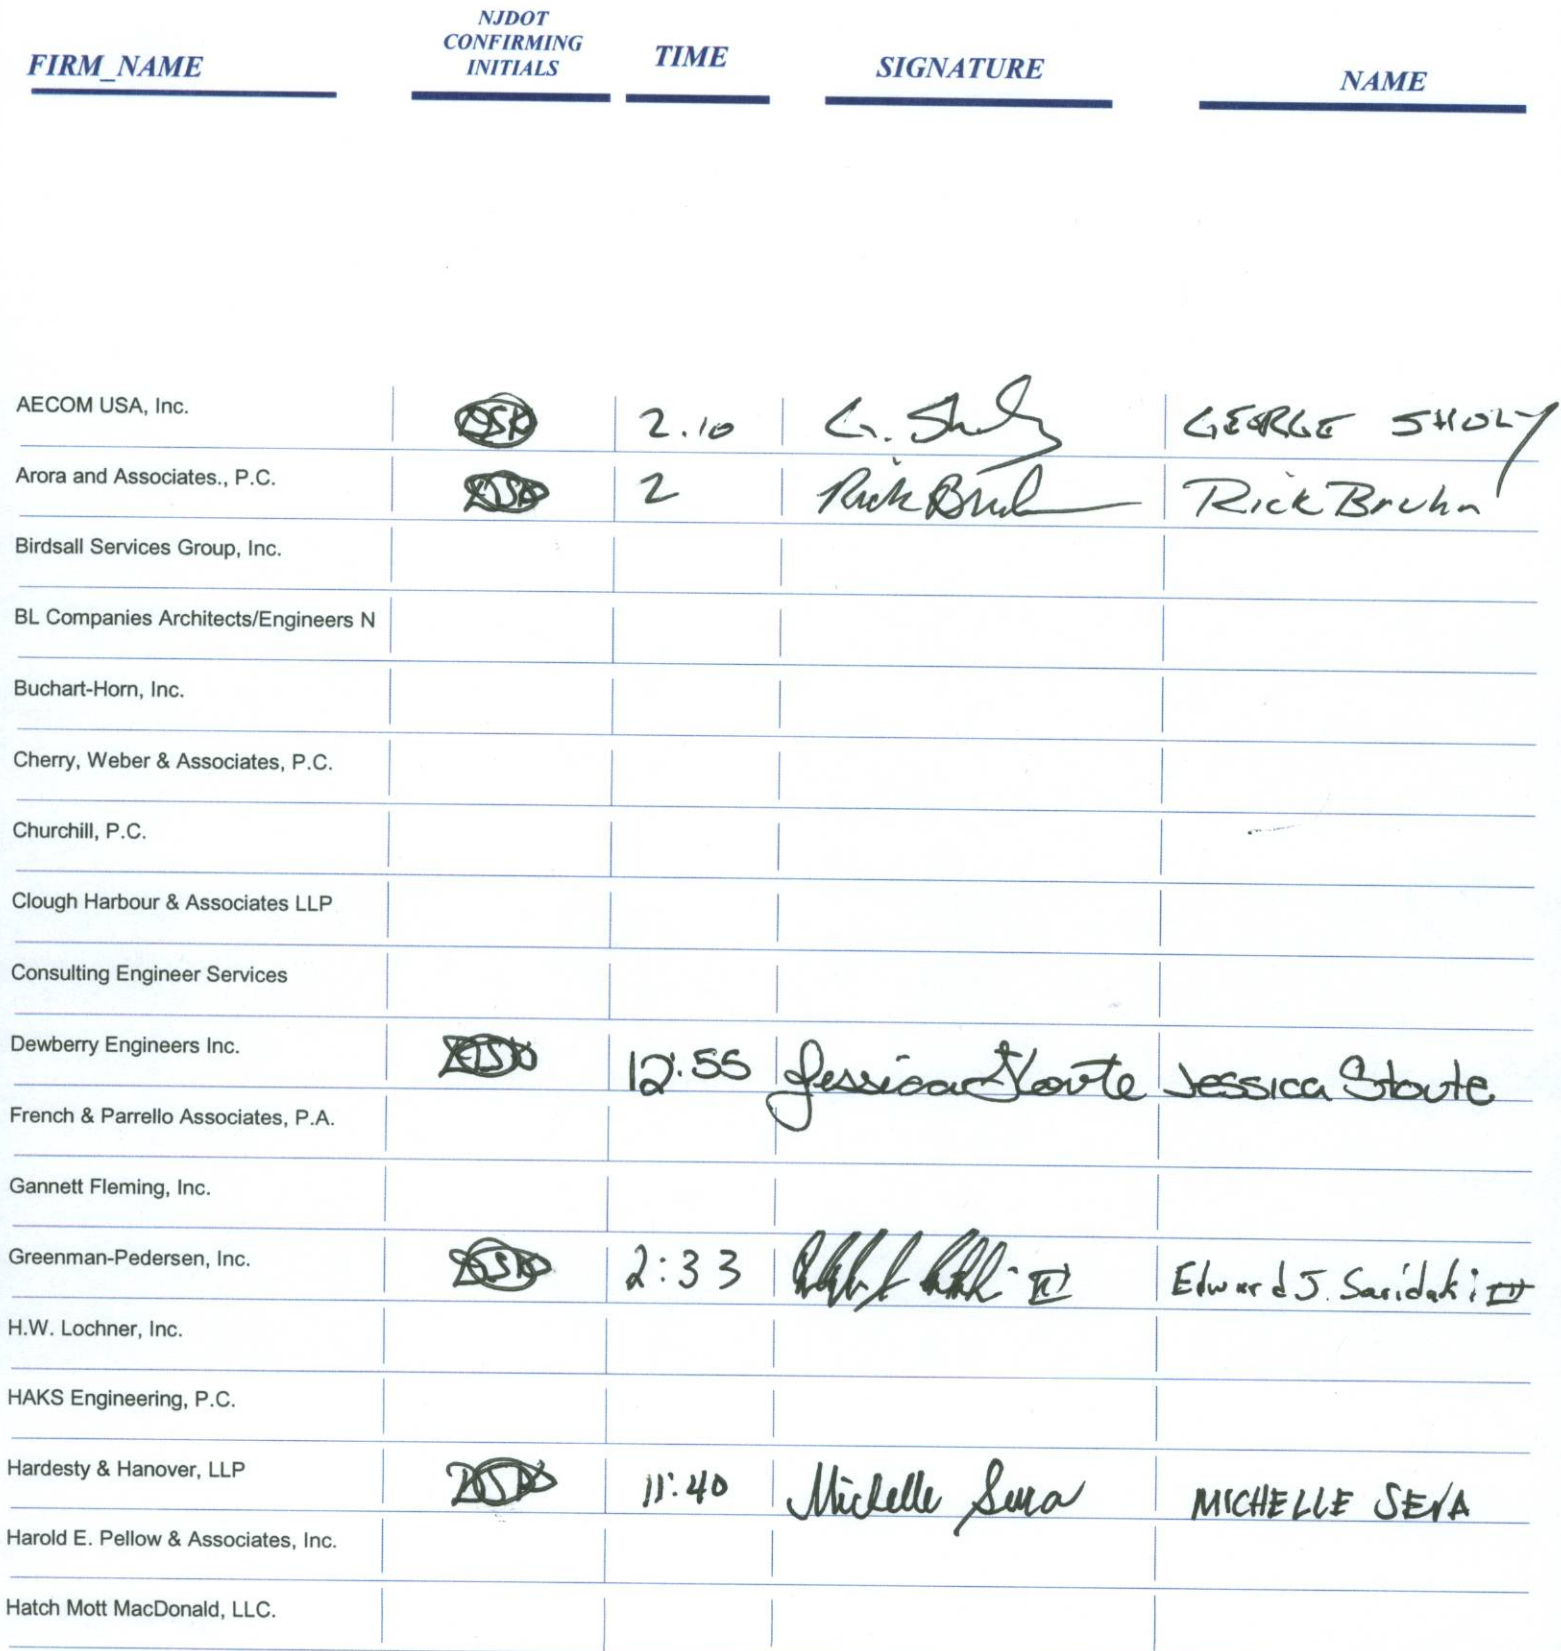 FIRM_NAME NJDOT CONFIRMING INITIALS TIME SIGNATURE NAME
AECOM USA, Inc. 2.10 G. GEORGE SHOLY
Arora and Associates., P.C. 2 Rick Rick Bruhn
Birdsall Services Group, Inc.
BL Companies Architects/Engineers N
Buchart-Horn, Inc.
Cherry, Weber & Associates, P.C.
Churchill, P.C.
Clough Harbour & Associates LLP
Consulting Engineer Services
Dewberry Engineers Inc. 12:55 Jessica Stoute Jessica Stoute
French & Parrello Associates, P.A.
Gannett Fleming, Inc.
Greenman-Pedersen, Inc. 2:33 Edward J. Saridaki III
H.W. Lochner, Inc.
HAKS Engineering, P.C.
Hardesty & Hanover, LLP 11:40 Michelle MICHELLE
Harold E. Pellow & Associates, Inc.
Hatch Mott MacDonald, LLC.